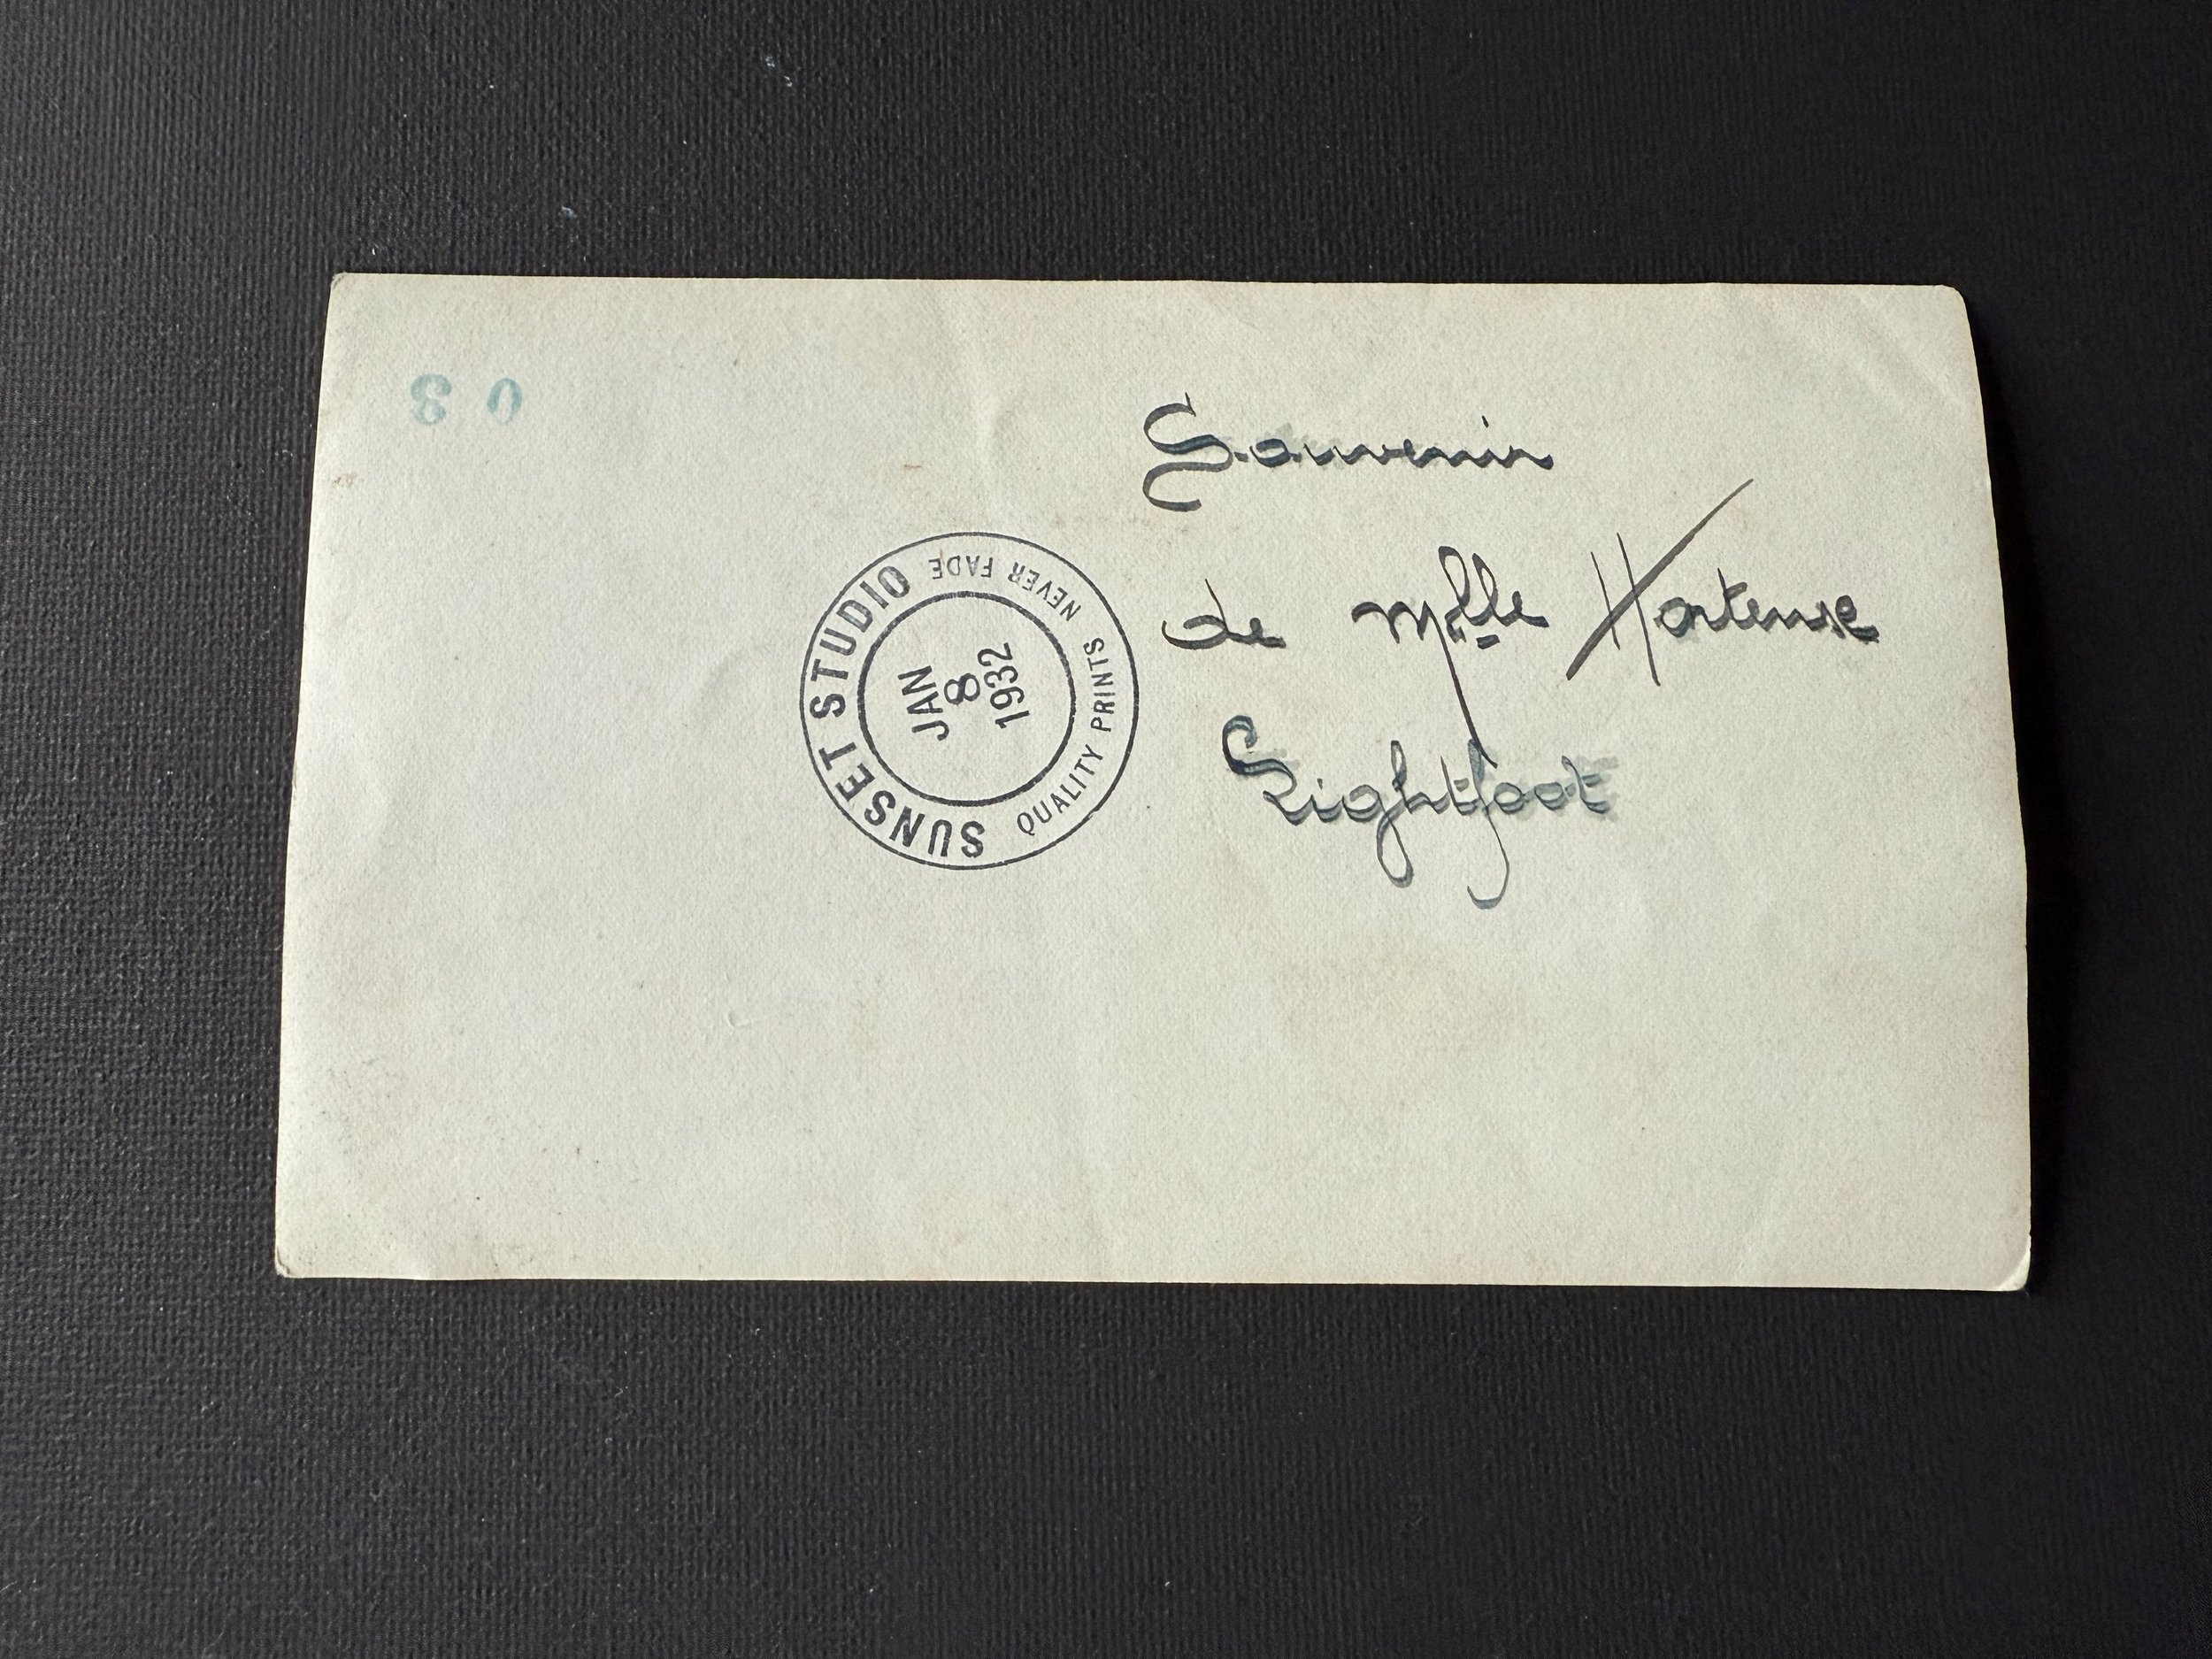 03
Souvenir
de Mlle Hortense
Lightfoot
SUNSET STUDIO
JAN
8
1932
QUALITY PRINTS NEVER FADE